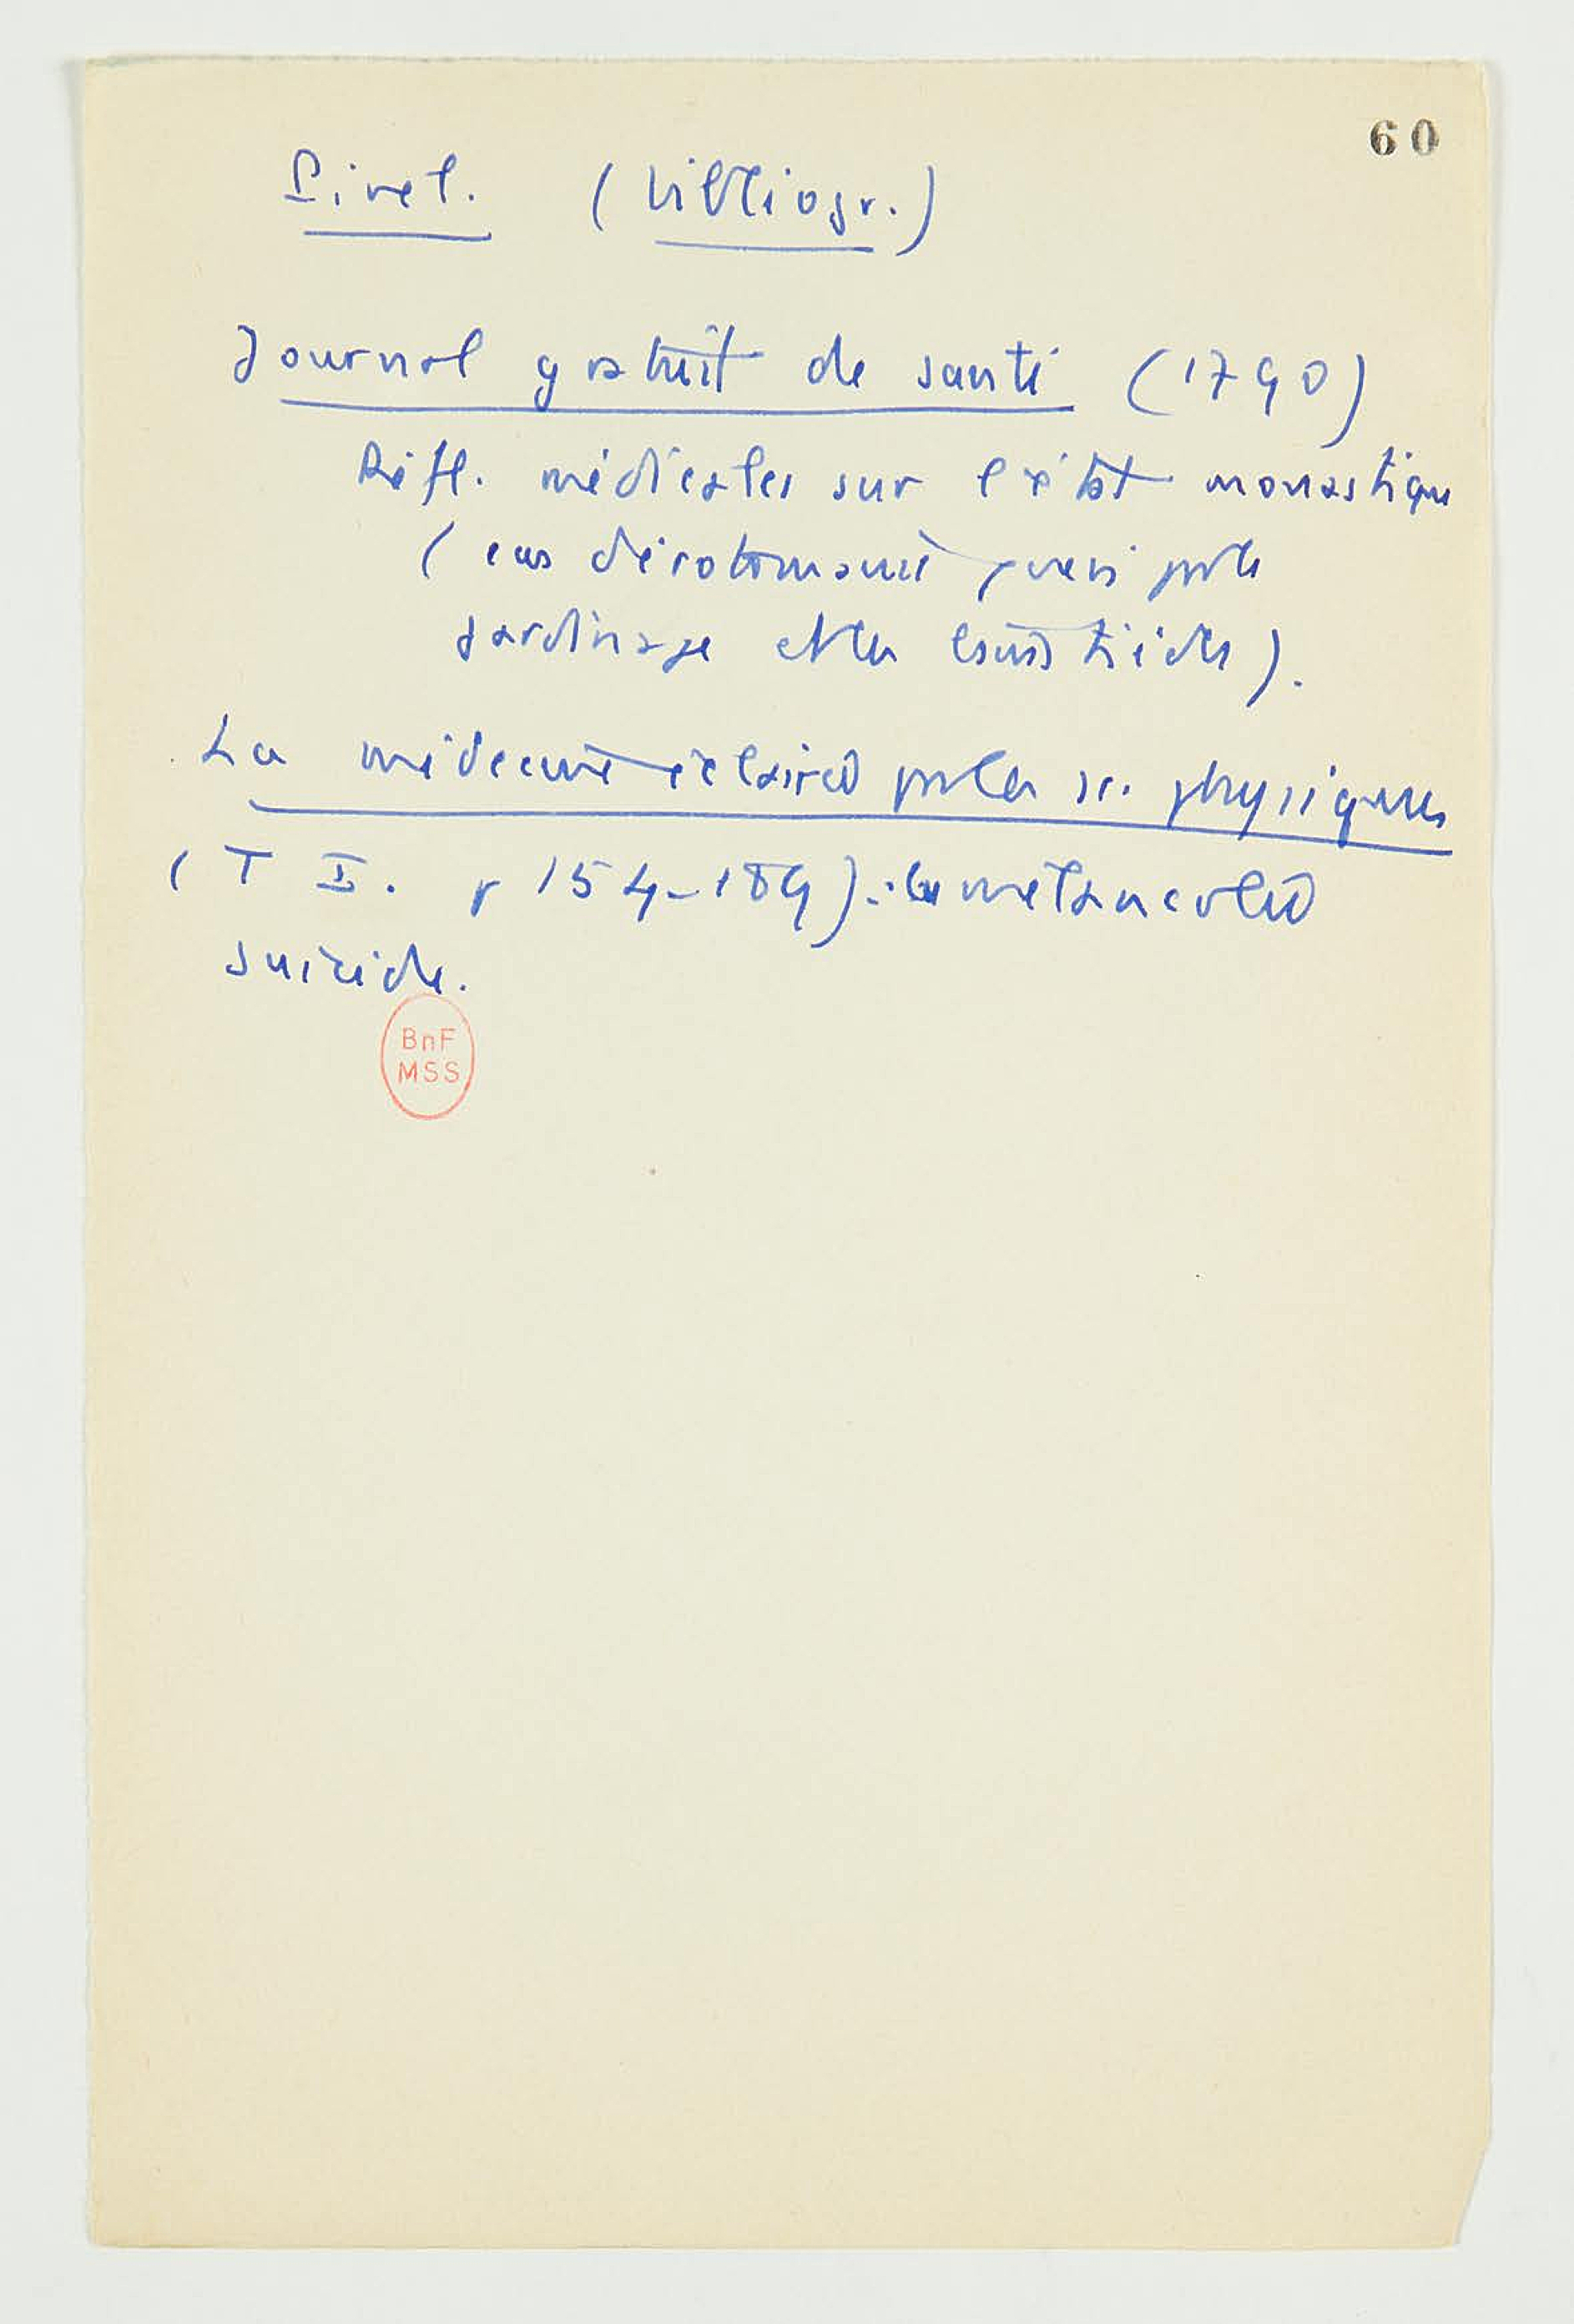 60
Pinel. (bibliogr.)
Journal gratuit de santé (1790)
Réfl. médicales sur l'état monastique
(cas d'érotomanie guéri par le
jardinage et les bains tièdes).
La médecine éclairée par les sc. physiques
(T I. p 154-189). : la mélancolie
suicide.
BnF
MSS